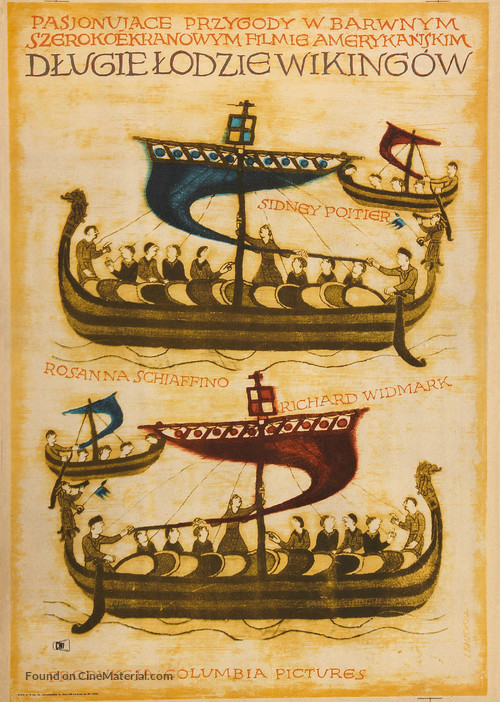 PASJONUJĄCE PRZYGODY W BARWNYM
SZEROKOEKRANOWYM FILMIE AMERYKAŃSKIM
DŁUGIE ŁODZIE WIKINGÓW
SIDNEY POITIER
ROSANNA SCHIAFFINO
RICHARD WIDMARK
CWF
COLUMBIA PICTURES
Found on CineMaterial.com